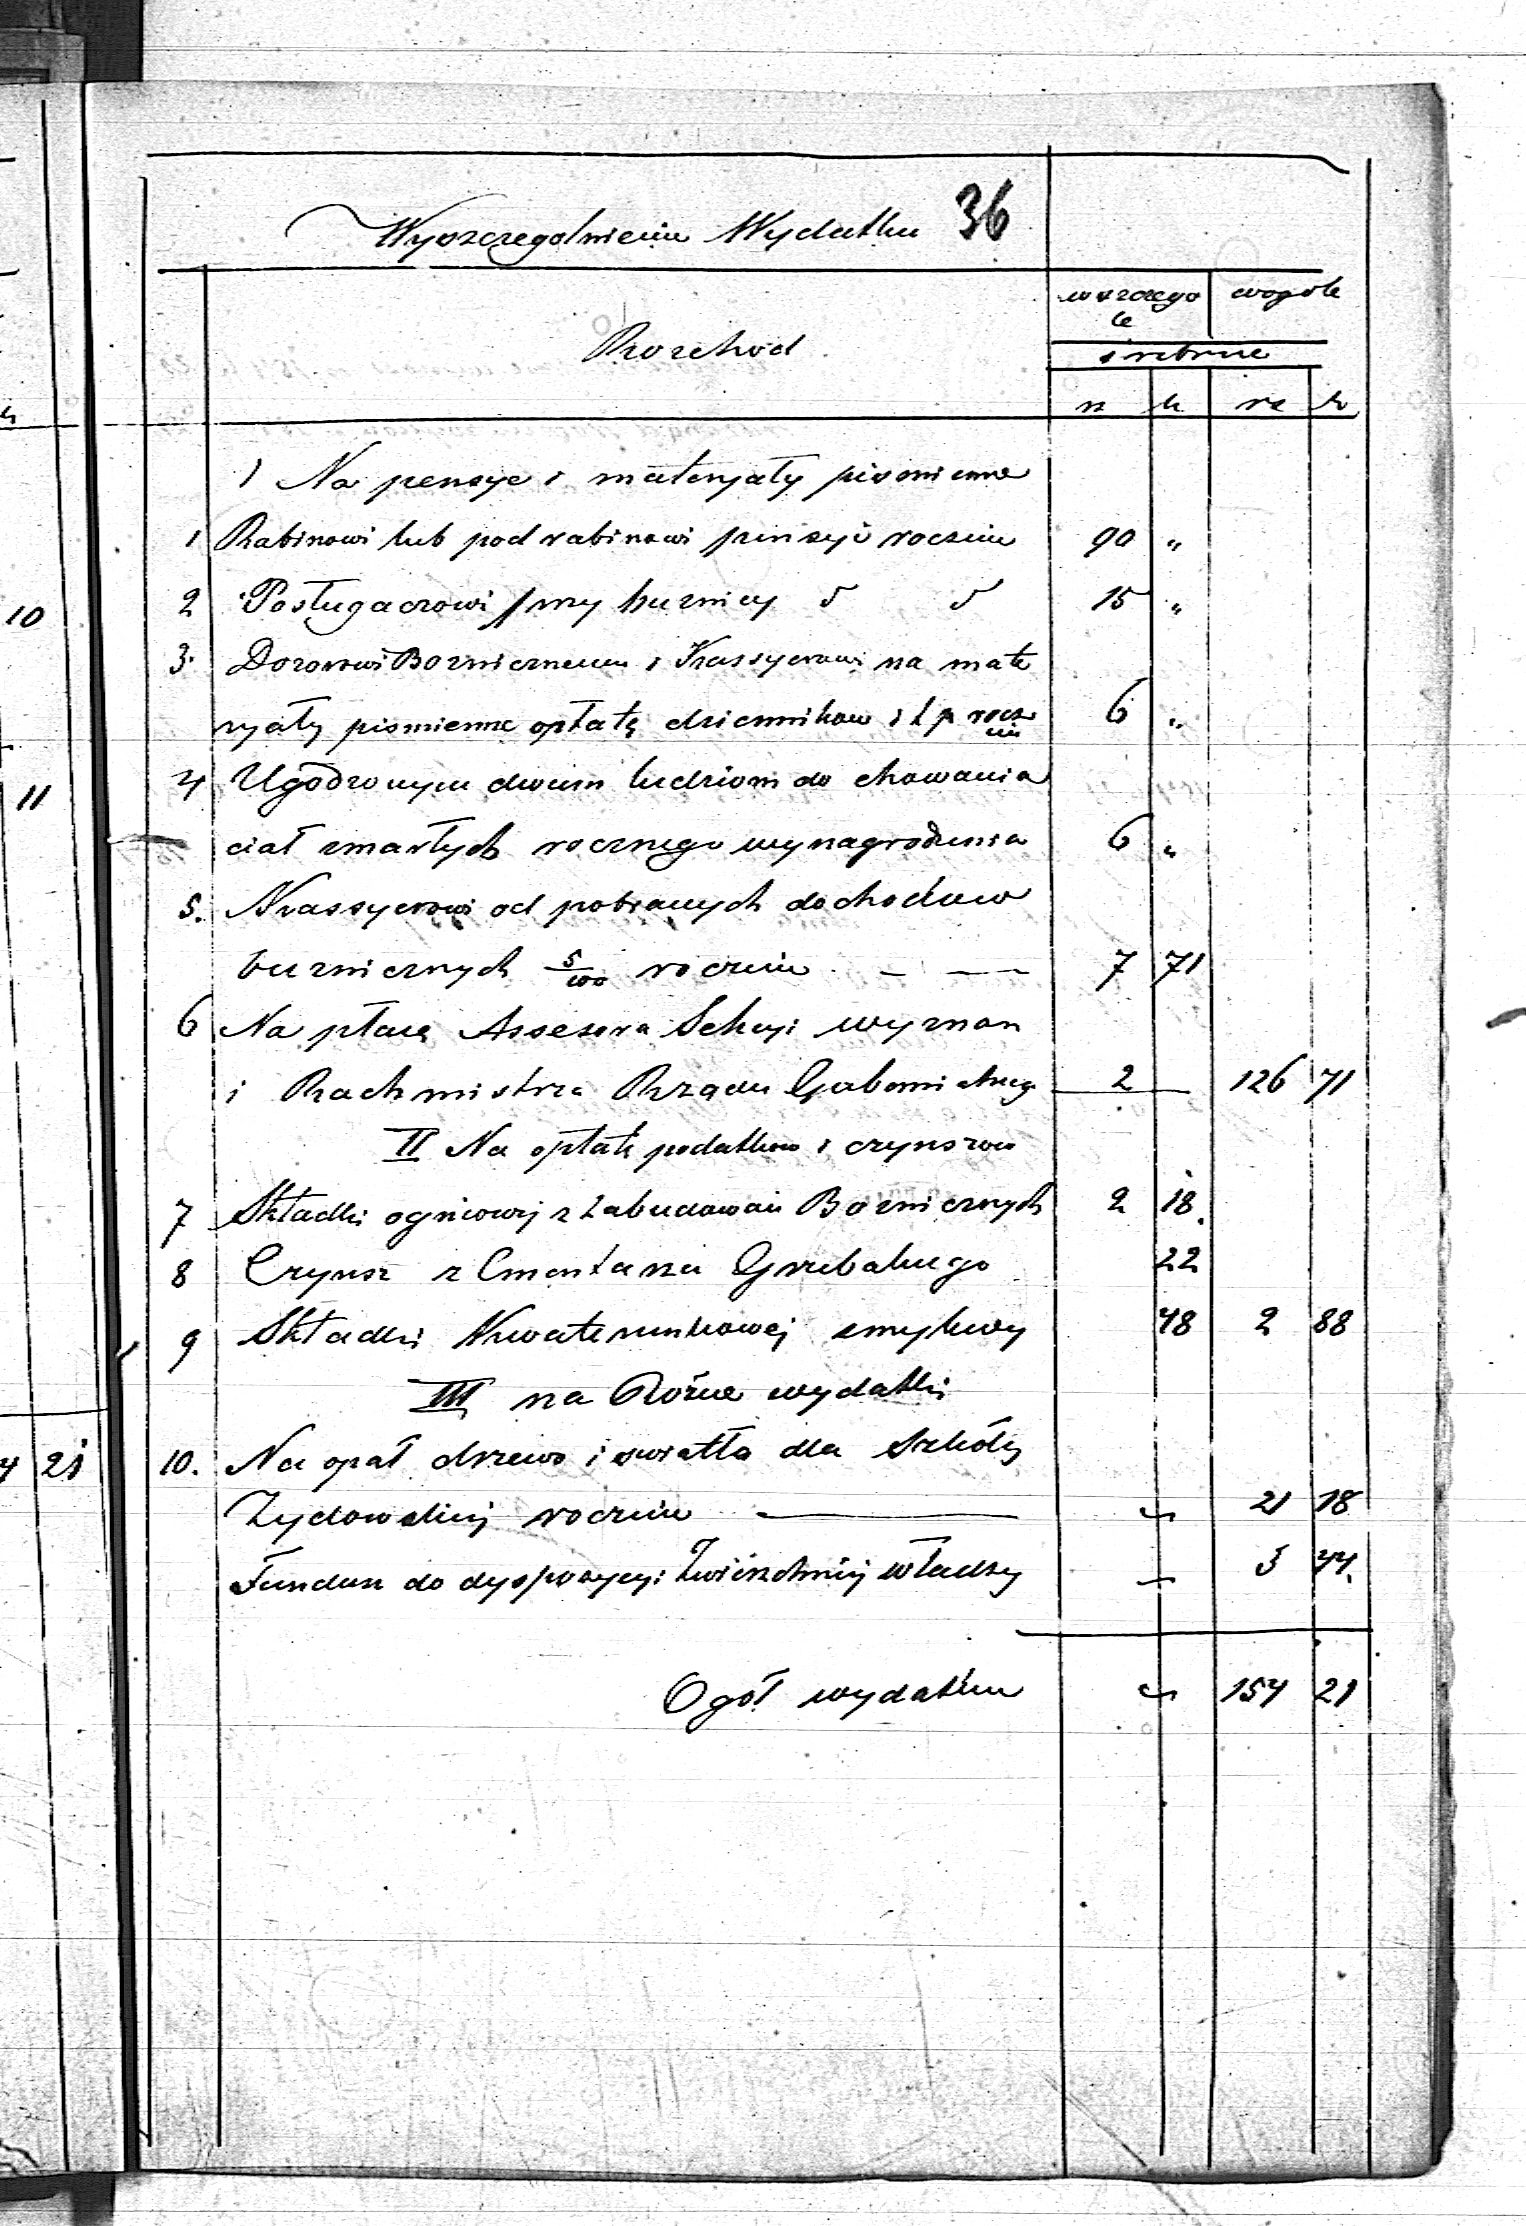 36
Wyszczegolnienie Wydatku
w szczego
le
wogóle
srebrne
Rozchód
rs k rs k
I Na pensye i materyały pismienne
1 Rabinowi lub pod rabinowi pensyi rocznie 90 "
2 Posługaczowi przy buznicy 15 "
3. Dozorowi Boznicznemu i Kassyerowi na mate
ryały pismienne opłatę dzienników i t p rocz
nie 6 "
4 Ugodzonym dwum ludziom do chowania
ciał zmarłych rocznego wynagrodzenia 6 "
5. Kassyerowi od pobranych dochodow
buznicznych 5/100 rocznie - - - 7 71
6 Na płacę Assesora Sekcyi wyznan
i Rachmistrza Rządu Gubernialnego 2 — 126 71
II Na opłatę podatkow i czynszow
7 Składki ogniowej z zabudowań Boznicznych 2 18
8 Czynsz z Cmentarza Grzebalnego 22
9 Składki Kwaterunkowej 48 2 88
III na Rożne wydatki
10. Na opał drzewo i swiatło dla Szkoły
Zydowskiej rocznie — 21 18
Fundusz do dyspozycyi Zwierzchniej władzy 3 44
Ogół wydatku 154 21
10
11
4 21